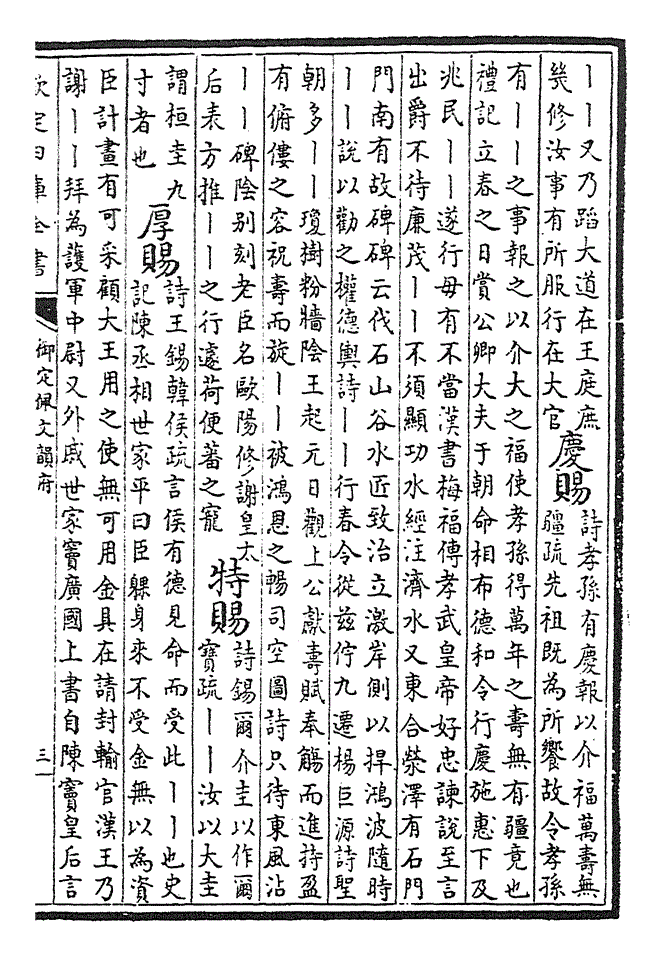 丨丨又乃蹈大道在王庭庶
幾修汝事有所服行在大官
慶賜
詩孝孫有慶報以介福萬壽無
疆疏先祖既為所饗故令孝孫
有丨丨之事報之以介大之福使孝孫得萬年之壽無有疆竟也
禮記立春之日賞公卿大夫于朝命相布德和令行慶施惠下及
兆民丨丨遂行毋有不當漢書梅福傳孝武皇帝好忠諫說至言
出爵不待廉茂丨丨不須顯功水經注濟水又東合滎澤有石門
門南有故碑碑云伐石山谷水匠致治立激岸側以捍鴻波隨時
丨丨說以勸之權德輿詩丨丨行春令從兹佇九遷楊巨源詩聖
朝多丨丨瓊樹粉牆陰王起元日觀上公獻壽賦奉觴而進持盈
有俯僂之容祝壽而旋丨丨被鴻恩之暢司空圖詩只待東風沾
丨丨碑陰别刻老臣名歐陽修謝皇太
后表方推丨丨之行遽荷便蕃之寵
特賜
詩錫爾介圭以作爾
寶疏丨丨汝以大圭
謂桓圭九
寸者也
厚賜
詩王錫韓侯疏言侯有德見命而受此丨丨也史
記陳丞相世家平曰臣躶身來不受金無以為資
臣計畫有可采顧大王用之使無可用金具在請封輸官漢王乃
謝丨丨拜為護軍中尉又外戚世家竇廣國上書自陳竇皇后言
欽定四庫全書
御定佩文韻府
三